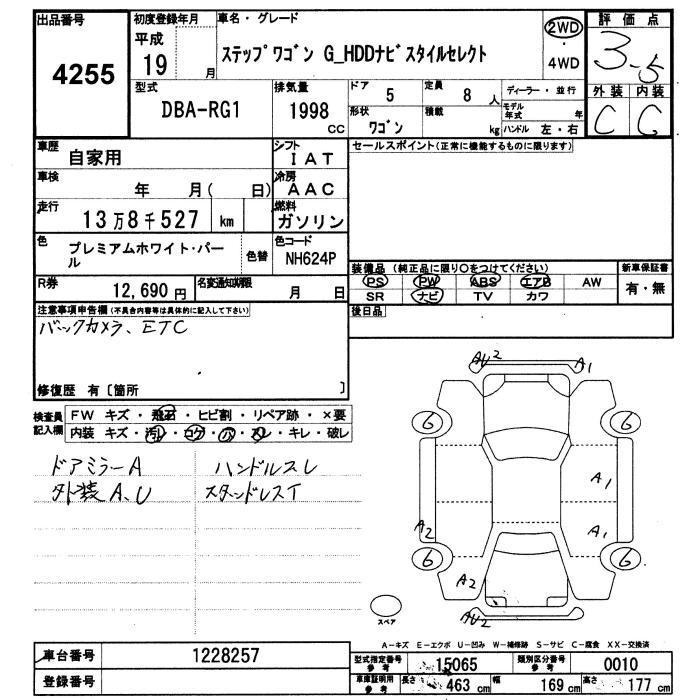 出品番号
4255
初度登録年月
平成
19 月
車名・グレード
ステップワゴン G_HDDナビスタイルセレクト
2WD
・
4WD
評価点
3.5
外装 内装
C C
型式
DBA-RG1
排気量
1998
CC
ドア 5
定員 8 人
ディーラー・並行
形状
ワゴン
積載 kg
モデル年式 年
ハンドル 左・右
車歴 自家用
シフト
IAT
セールスポイント(正常に機能するものに限ります)
車検
年 月( 日)
冷房
AAC
走行
13万8千527 km
燃料
ガソリン
色
プレミアムホワイト・パール
色替
色コード
NH624P
装備品(純正品に限り○をつけてください)
新車保証書
PS PW ABS エアB AW
有・無
SR ナビ TV カワ
R券
12,690 円
名変通知期限
月 日
後日品
注意事項申告欄(不具合内容等は具体的に記入して下さい)
バックカメラ、ETC
修復歴 有〔箇所 〕
検査員記入欄
FW キズ・飛石・ヒビ割・リペア跡・×要
内装 キズ・汚レ・コゲ・穴・スレ・キレ・破レ
ドアミラーA ハンドルスレ
外装A、U
AU2 A1
6 6
A1
A2 A1
6 6
A2
AU2
スペア
A-キズ E-エクボ U-凹み W-補修跡 S-サビ C-腐食 XX-交換済
車台番号 1228257
型式指定番号 参考 15065
類別区分番号 参考 0010
登録番号
車庫証明用 参考
長さ 463 cm
幅 169 cm
高さ 177 cm